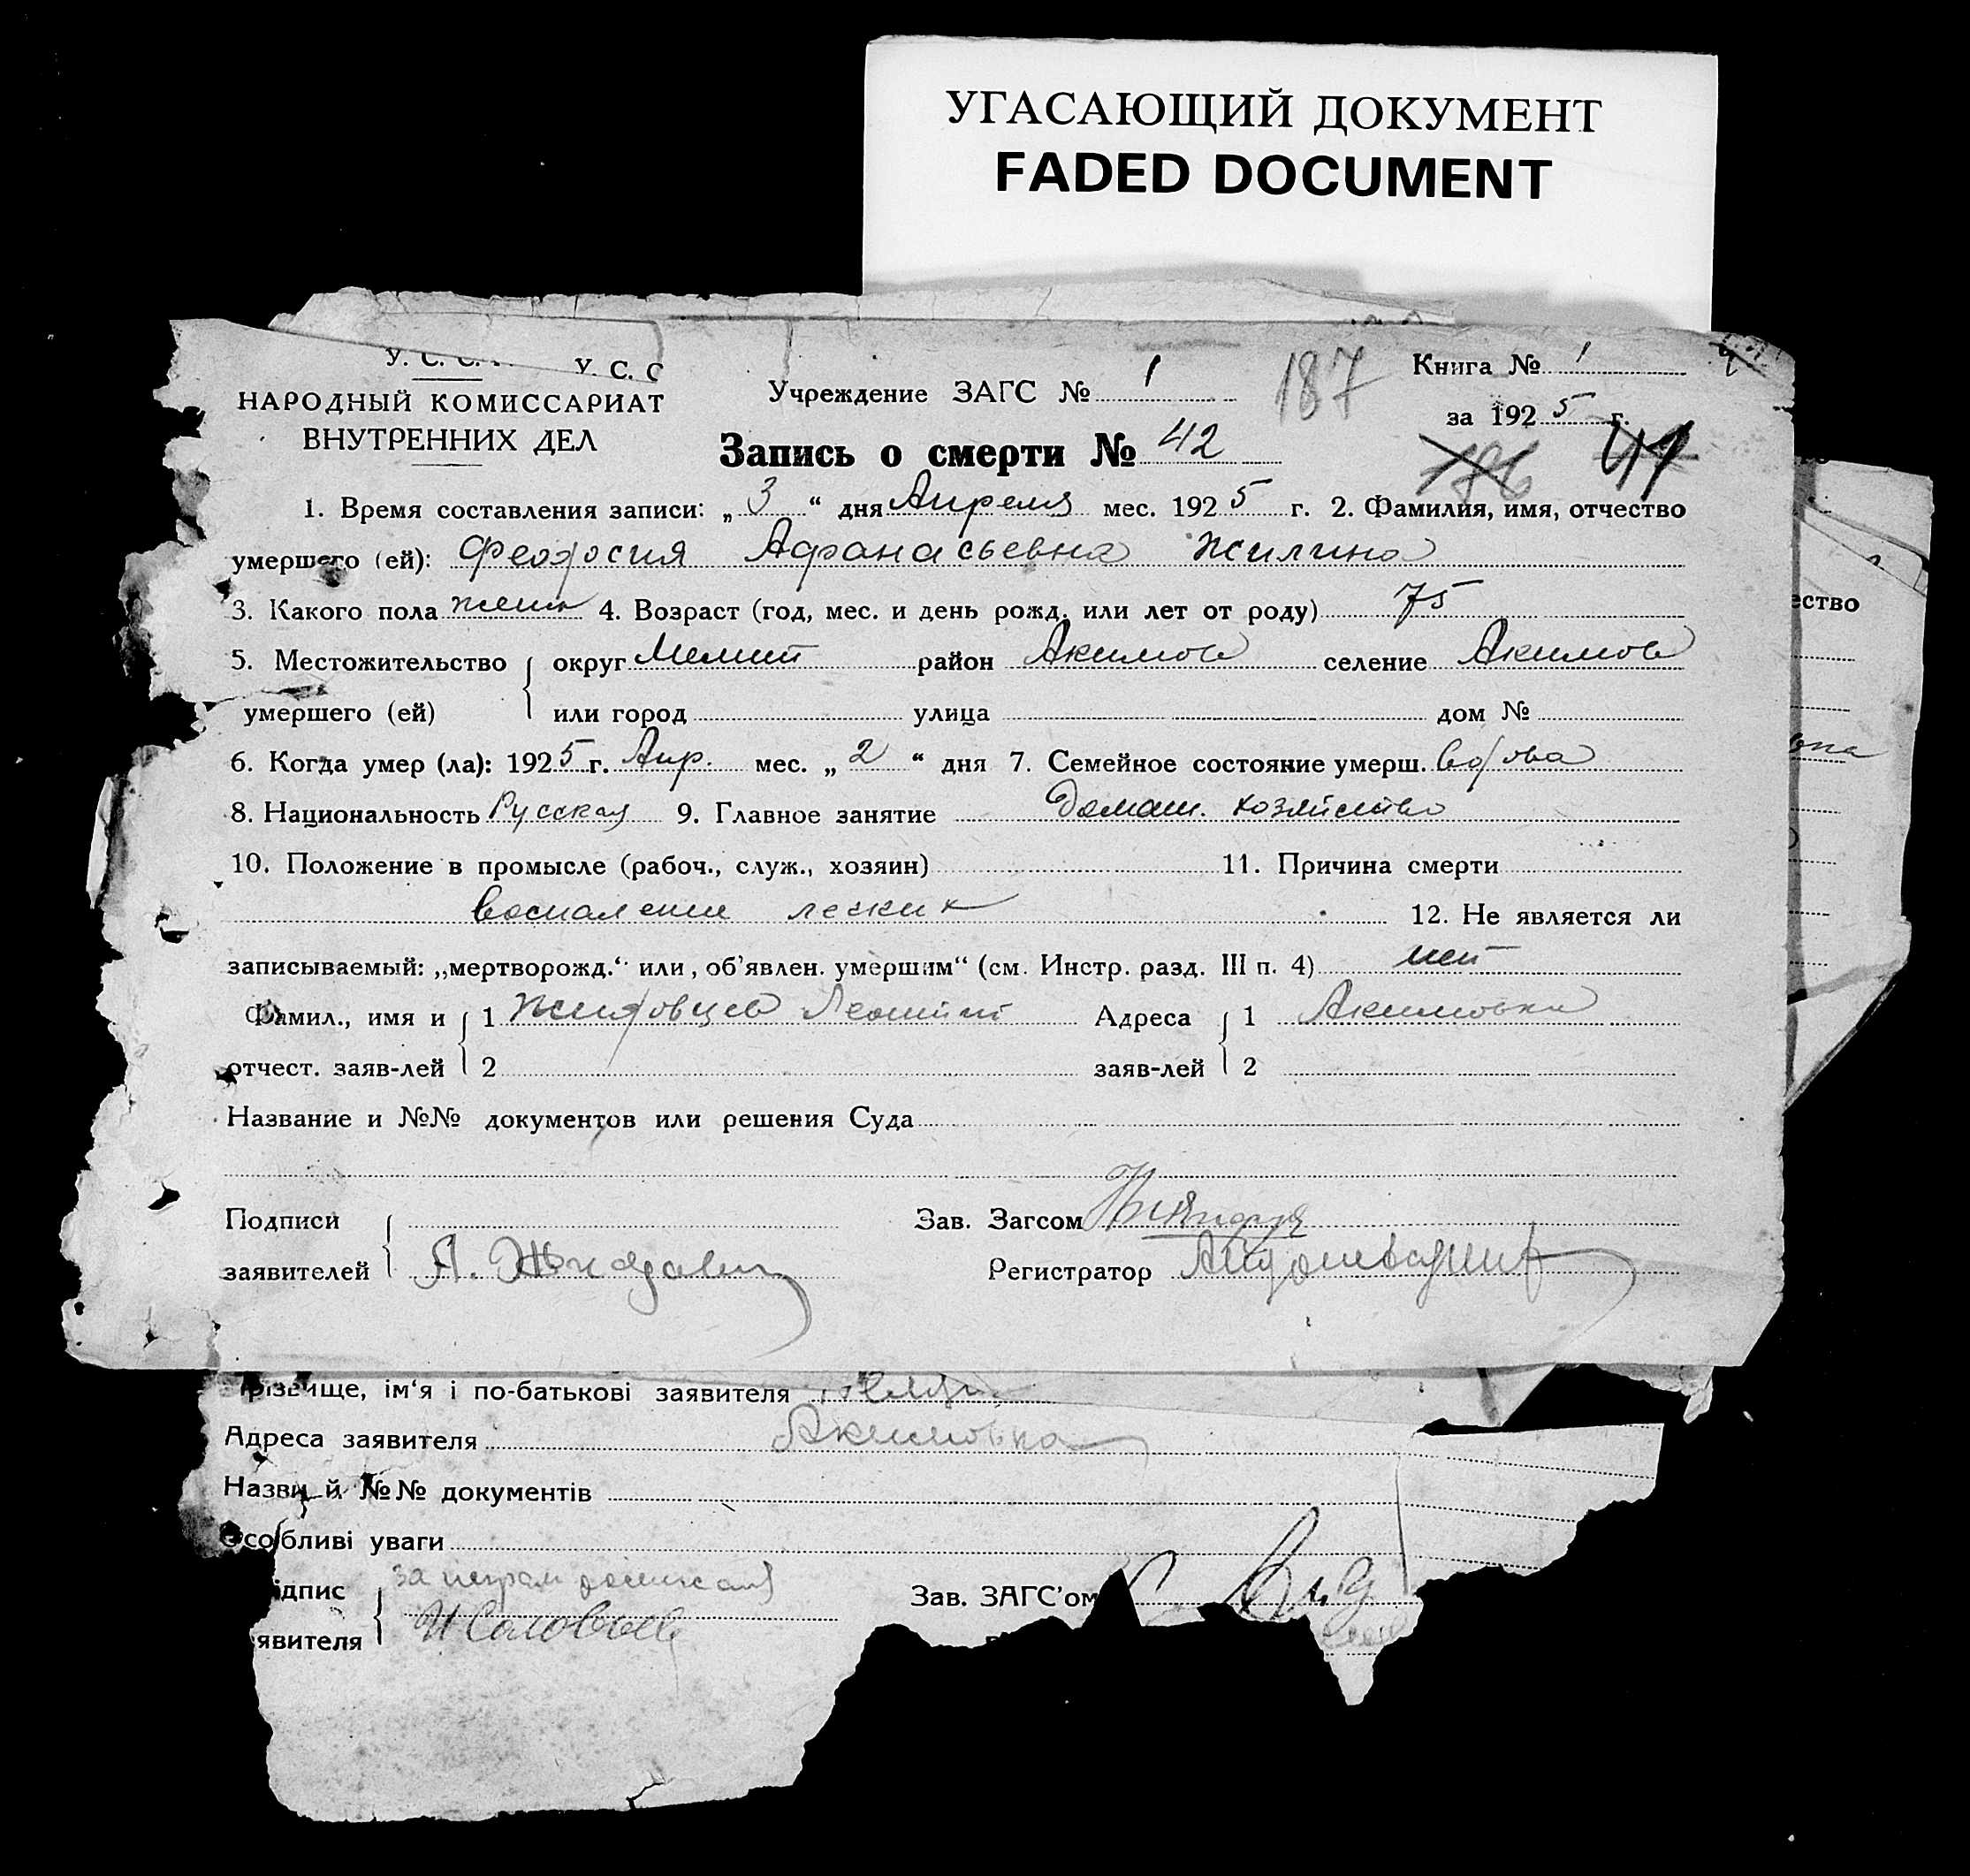 УГАСАЮЩИЙ ДОКУМЕНТ
FADED DOCUMENT
У. С. С. У. С. С
НАРОДНЫЙ КОМИССАРИАТ
ВНУТРЕННИХ ДЕЛ
Учреждение ЗАГС № 1
187
Книга № 1
за 1925 г.
186 41
Запись о смерти № 42
1. Время составления записи: „3“ дня Апреля мес. 1925 г. 2. Фамилия, имя, отчество
умершего (ей): Феодосия Афанасьевна Жилина
3. Какого пола женск 4. Возраст (год, мес. и день рожд. или лет от роду) 75
5. Местожительство округ Мелит район Акимов селение Акимов
умершего (ей) или город улица дом №
6. Когда умер (ла): 1925 г. Апр. мес. „2“ дня 7. Семейное состояние умерш. вдова
8. Национальность Русская 9. Главное занятие Домаш. хозяйство
10. Положение в промысле (рабоч., служ., хозяин) 11. Причина смерти
воспаление легких 12. Не является ли
записываемый: „мертворожд.“ или, об'явлен. умершим“ (см. Инстр. разд. III п. 4) нет
Фамил., имя и 1 Жидовцев Леонтий Адреса 1 Акимовка
отчест. заяв-лей 2 заяв-лей 2
Название и №№ документов или решения Суда
Подписи Зав. Загсом
заявителей Регистратор
ество
вна
різвище, ім‘я і по-батькові заявителя
Адреса заявителя Акимовка
Назви й №№ документів
Особливі уваги
ідпис Зав. ЗАГС’ом
явителя И Соловьев